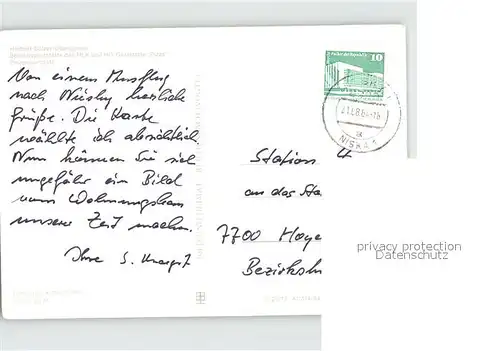 Von einem Ausflug
nach Niesky herzliche
Grüße. Die Karte
wählte ich absichtlich.
Nun können Sie sich
ungefähr ein Bild
vom Wohnungsbau
unserer Zeit machen.
Ihre S. Margit
10
NISKY 1
Station 4
an das Sta
7700 Hoye
Bezirkskr
privacy protection
Datenschutz